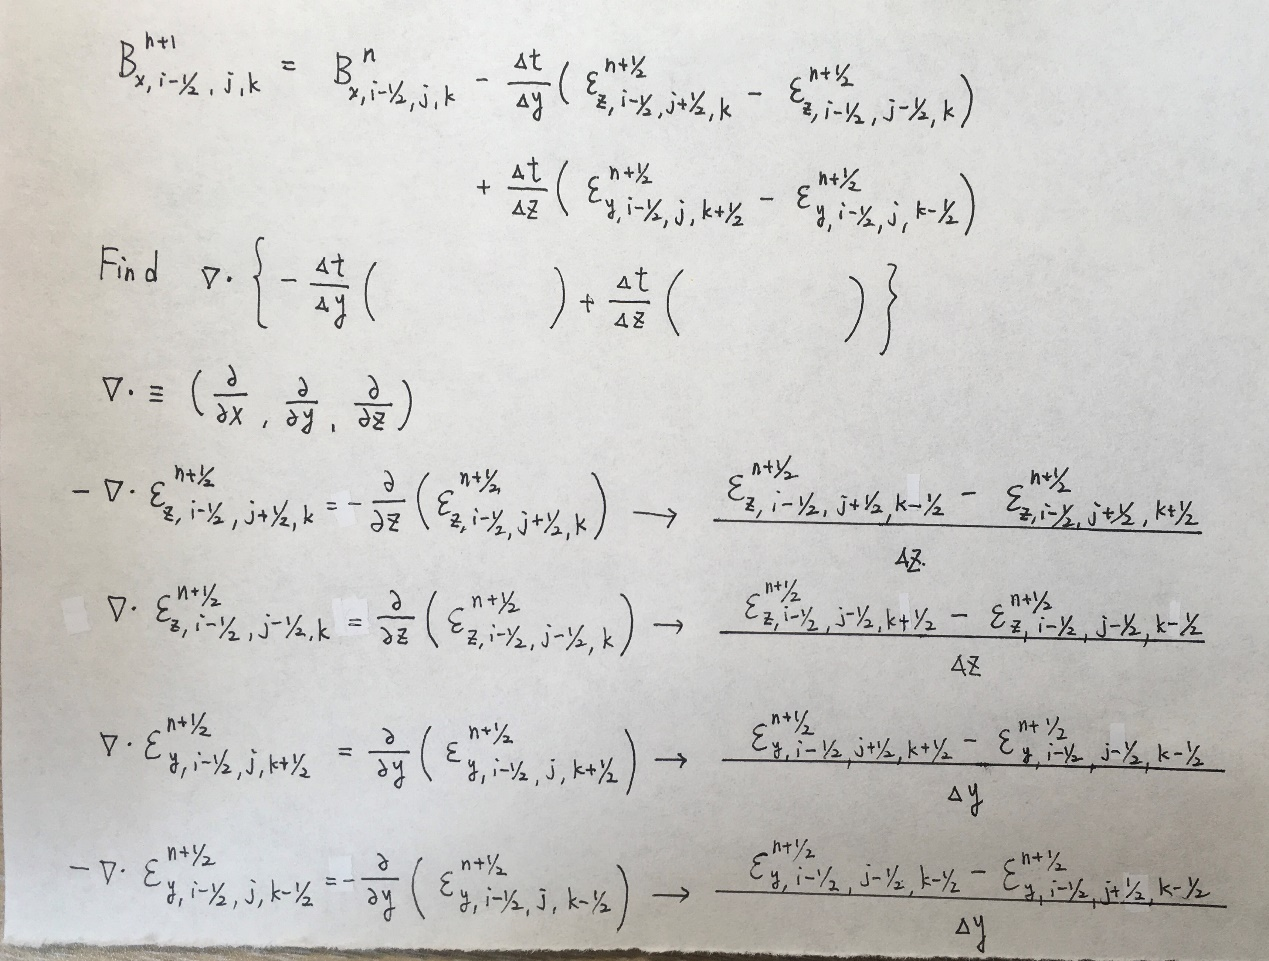 B^{n+1}_{x, i-1/2, j, k} = B^{n}_{x, i-1/2, j, k} - Δt/Δy ( ε^{n+1/2}_{z, i-1/2, j+1/2, k} - ε^{n+1/2}_{z, i-1/2, j-1/2, k} )
+ Δt/Δz ( ε^{n+1/2}_{y, i-1/2, j, k+1/2} - ε^{n+1/2}_{y, i-1/2, j, k-1/2} )
Find ∇· { - Δt/Δy ( ) + Δt/Δz ( ) }
∇· ≡ ( ∂/∂x , ∂/∂y , ∂/∂z )
- ∇· ε^{n+1/2}_{z, i-1/2, j+1/2, k} = - ∂/∂z ( ε^{n+1/2}_{z, i-1/2, j+1/2, k} ) → (ε^{n+1/2}_{z, i-1/2, j+1/2, k-1/2} - ε^{n+1/2}_{z, i-1/2, j+1/2, k+1/2}) / Δz.
∇· ε^{n+1/2}_{z, i-1/2, j-1/2, k} = ∂/∂z ( ε^{n+1/2}_{z, i-1/2, j-1/2, k} ) → (ε^{n+1/2}_{z, i-1/2, j-1/2, k+1/2} - ε^{n+1/2}_{z, i-1/2, j-1/2, k-1/2}) / Δz
∇· ε^{n+1/2}_{y, i-1/2, j, k+1/2} = ∂/∂y ( ε^{n+1/2}_{y, i-1/2, j, k+1/2} ) → (ε^{n+1/2}_{y, i-1/2, j+1/2, k+1/2} - ε^{n+1/2}_{y, i-1/2, j-1/2, k-1/2}) / Δy
- ∇· ε^{n+1/2}_{y, i-1/2, j, k-1/2} = - ∂/∂y ( ε^{n+1/2}_{y, i-1/2, j, k-1/2} ) → (ε^{n+1/2}_{y, i-1/2, j-1/2, k-1/2} - ε^{n+1/2}_{y, i-1/2, j+1/2, k-1/2}) / Δy